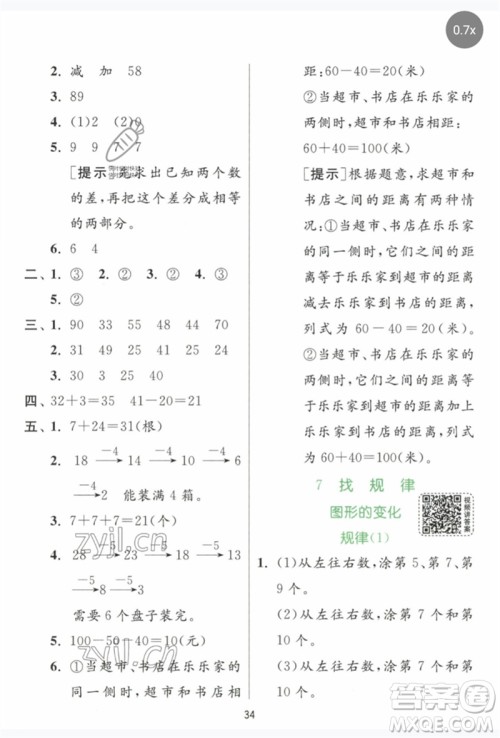 0.7x
2. 减 加 58
3. 89
4. (1)2 (2)0
5. 9 9 7 7
[提示]先求出已知两个数
的差，再把差分成相等
的两部分。
6. 6 4
二、1. ③ 2. ② 3. ② 4. ③
5. ②
三、1. 90 33 55 34 70
2. 31 49 25 21 71
3. 30 3 25 40
四、32+3=35 41-20=21
五、1. 7+24=31(根)
2. 18 -4→ 14 -4→ 10 -4→ 6
-4→ 2 能装满 4 箱。
3. 7+7+7=21(个)
4. 28 -5→ 23 -5→ 18 -5→
13 -5→ 8 -5→ 3
需要 6 个盘子装完。
5. 100-50-40=10(元)
6. ①当超市、书店在乐乐家的
同一侧时，超市和书店相
距：60-40=20(米)
②当超市、书店在乐乐家的
两侧时，超市和书店相距：
60+40=100(米)
[提示]根据题意，求超市和
书店之间的距离有两种情
况：①当超市、书店在乐乐家的
同一侧时，它们之间的距
离等于乐乐家到超市的距离
减去乐乐家到书店的距离，
列式为 60-40=20(米)。
②当超市、书店在乐乐家的
两侧时，它们之间的距离等
于乐乐家到超市的距离加上
乐乐家到书店的距离，列式
为 60+40=100(米)。
7 找规律
图形的变化
规律(1)
视频讲答案
1. (1)从左往右数，涂第 5、第 7、第
9 个。
(2)从左往右数，涂第 7 个和第
10 个。
(3)从左往右数，涂第 7 个和第
10 个。
34
zyjl.cn
zyjl.cn
答案圈